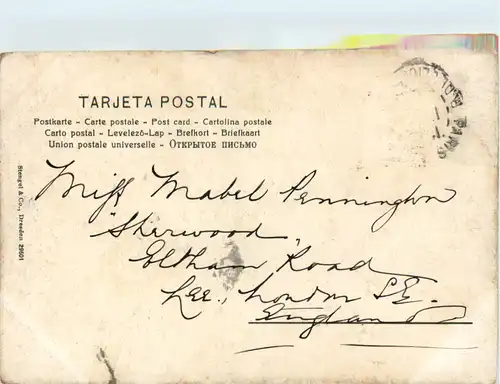 TARJETA POSTAL
Postkarte - Carte postale - Post card - Cartolina postale
Carto postal - Levelező-Lap - Brefkort - Briefkaart
Union postale universelle - ОТКРЫТОЕ ПИСЬМО
Stengel & Co., Dresden 29501
Miss Mabel Pennington
"Sherwood"
Eltham Road
Lee, London S.E.
England